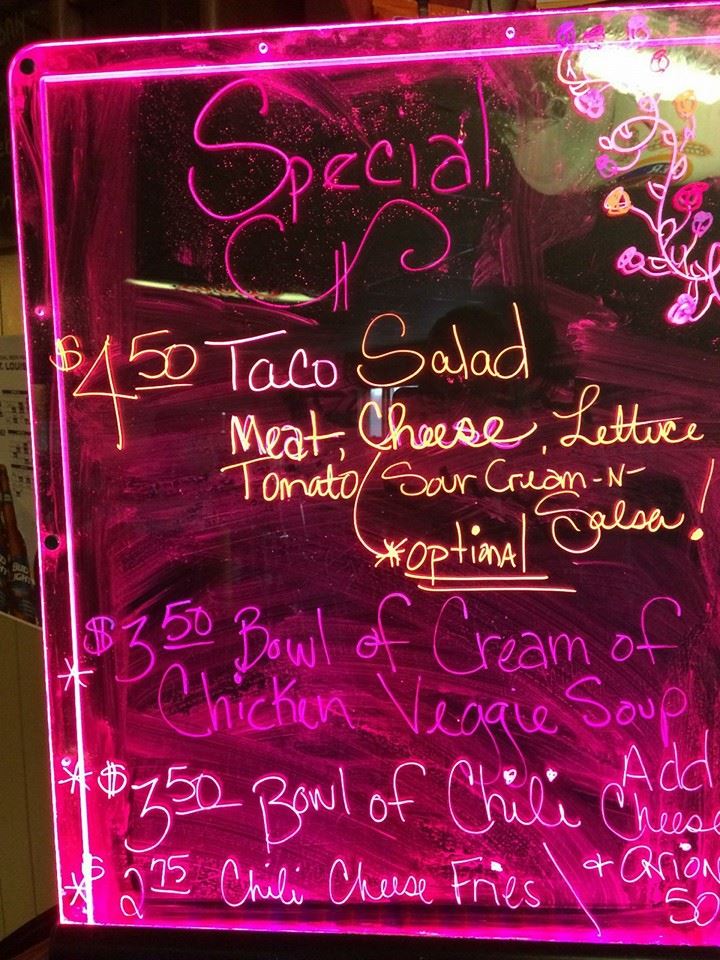 Special
$4.50 Taco Salad
Meat, Cheese, Lettuce
Tomato / Sour Cream -N-
Salsa!
*optional
$3.50 Bowl of Cream of
* Chicken Veggie Soup
* $3.50 Bowl of Chili Add
Cheese
* $2.75 Chili Cheese Fries \ + Onion
50